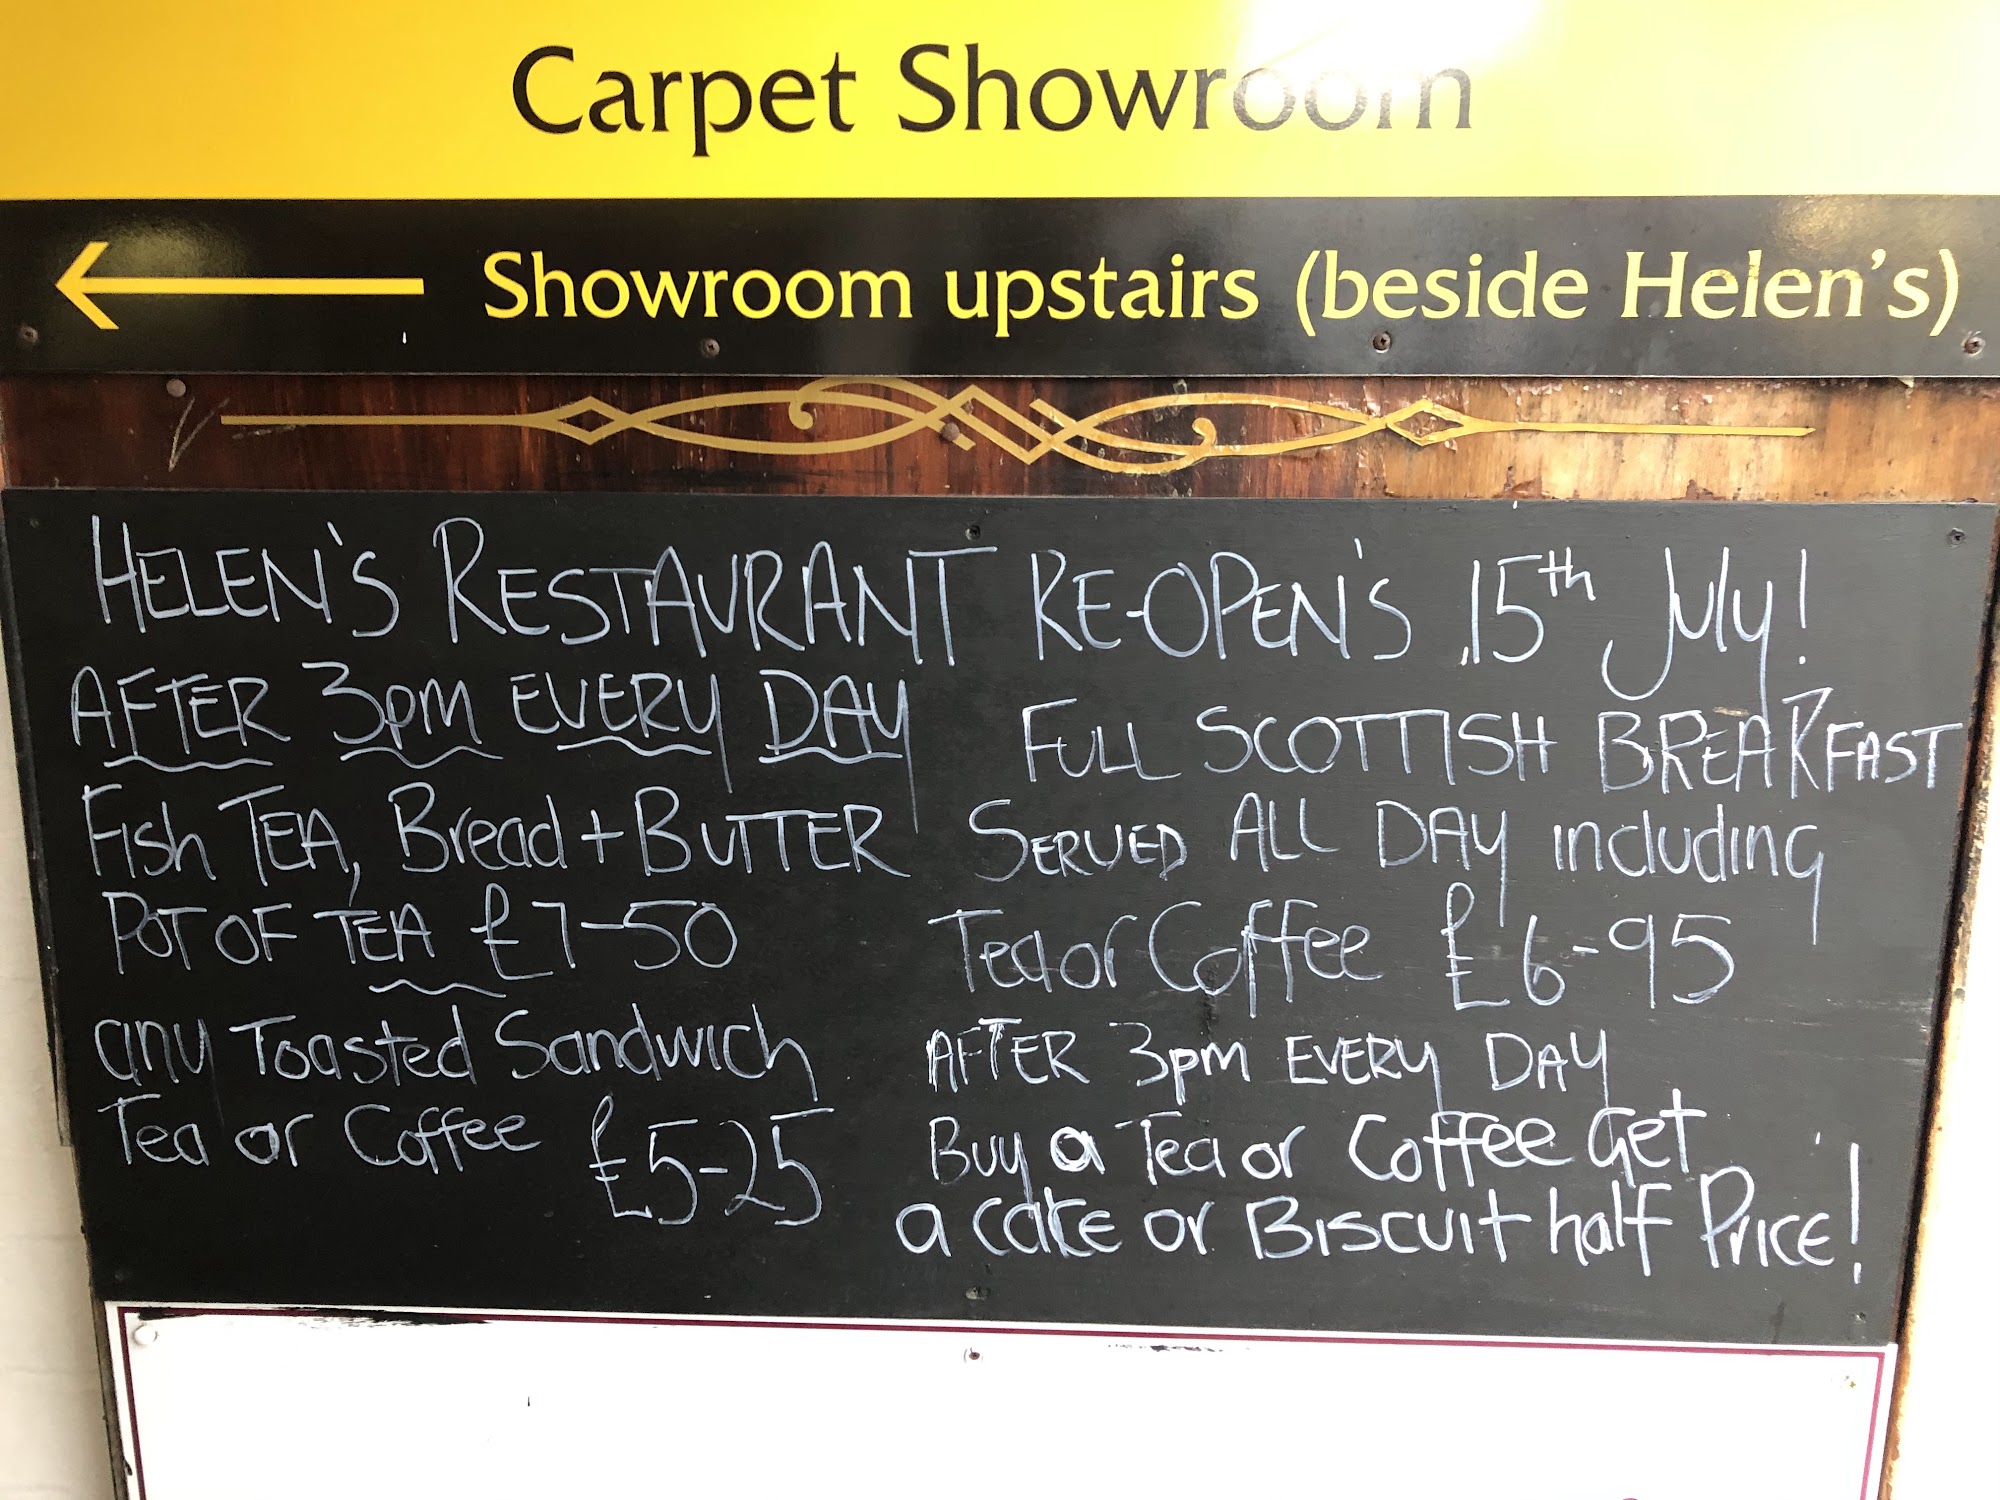 Carpet Showroom
Showroom upstairs (beside Helen's)
HELEN'S RESTAURANT RE-OPEN'S 15th July!
AFTER 3pm EVERY DAY
Fish TEA, Bread + BUTTER
POT OF TEA £7-50
any Toasted Sandwich
Tea or Coffee £5-25
FULL SCOTTISH BREAKFAST
SERVED ALL DAY including
Tea or Coffee £6-95
AFTER 3pm EVERY DAY
Buy a Tea or Coffee Get
a cake or Biscuit half Price!